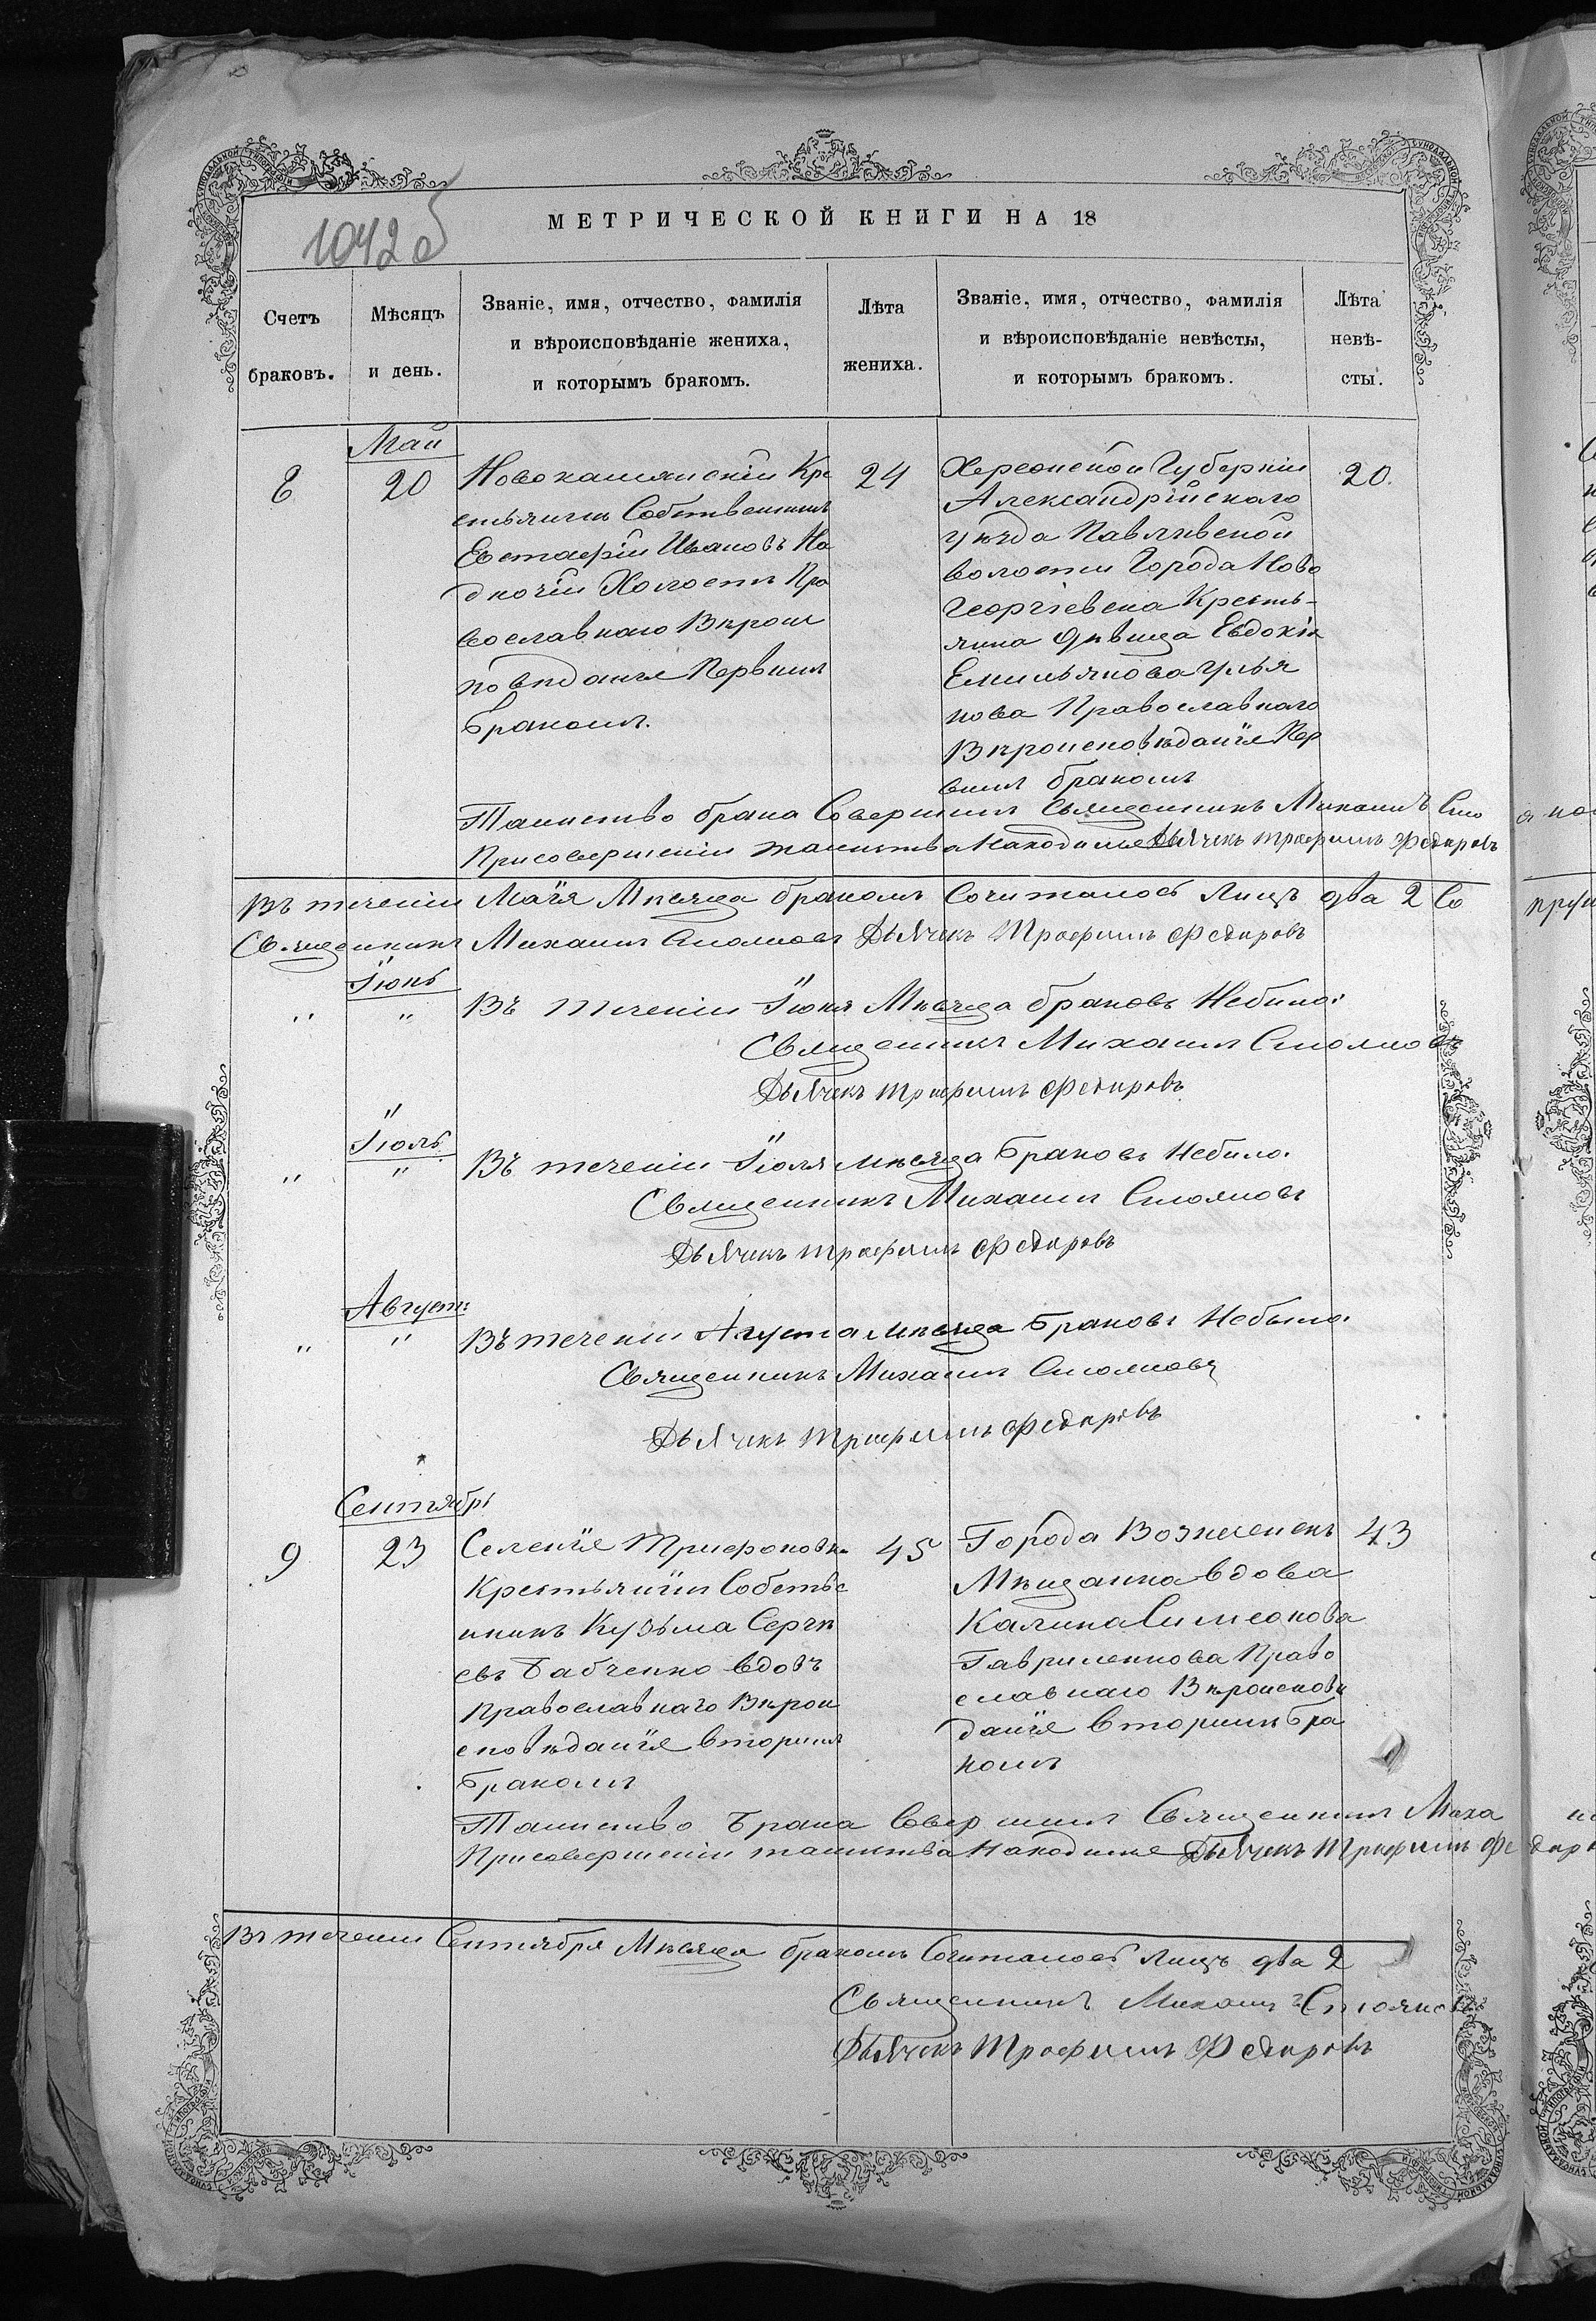 1042 об
МЕТРИЧЕСКОЙ КНИГИ НА 18
Счетъ браковъ.
Мѣсяцъ и день.
Званіе, имя, отчество, фамилія
и вѣроисповѣданіе жениха,
и которымъ бракомъ.
Лѣта жениха.
Званіе, имя, отчество, фамилія
и вѣроисповѣданіе невѣсты,
и которымъ бракомъ.
Лѣта невѣ-
сты.
Май
8
20
Кре
стьянинъ Собственникъ
Евстафій Ивановъ На
дночій Холостъ Пра
вославнаго Вѣроис
повѣданія Первымъ
Бракомъ.
24
Херсонской Губерніи
Александрійскаго
уѣзда
волости Города Ново
Георгіевска Кресть-
янка Дѣвица Евдокія
Емильянова Улья
нова Православнаго
Вѣроисповѣданія Пер
вымъ бракомъ
20.
Таинство брака Совершилъ Священникъ Михаилъ Сто
При совершеніи таинства Находился Дьячекъ Трофимъ Федоровъ
Въ теченіи Маія Мѣсяца бракомъ Сочиталось Лицъ два 2 Со
Священникъ Михаилъ Стояновъ Дьячекъ Трофимъ Федоровъ
Іюнь
" " Въ теченіи Іюня Мѣсяца браковъ Небыло.
Священникъ Михаилъ Стояновъ
Дьячекъ Трофимъ Федоровъ
Іюль
" " Въ теченіи Іюля мѣсяца Браковъ Небыло.
Священникъ Михаилъ Стояновъ
Дьячекъ Трофимъ Федоровъ
Августъ
" " Въ теченіи Августа мѣсяца Браковъ Небыло.
Священникъ Михаилъ Стояновъ
Дьячекъ Трофимъ Федоровъ
Сентябрь
9
23
Селенія Трифоновк
Крестьянинъ Собств
нникъ Кузьма Сергѣ
евъ Бабченко вдовъ
Православнаго Вѣрои
сповѣданія вторымъ
Бракомъ
45
Города Вознесенск
Мѣщанка вдова
Калина Симеонова
Гавриленкова Право
славнаго Вѣроисповѣ
данія вторымъ бра
комъ
43
Таинство Брака Совершилъ Священникъ Миха
При совершеніи таинства Находился Дьячекъ Трофимъ Федоровъ
Въ теченіи Сентября Мѣсяца бракомъ Сочиталось Лицъ два 2
Священникъ Михаилъ Стояновъ
Дьячекъ Трофимъ Федоровъ